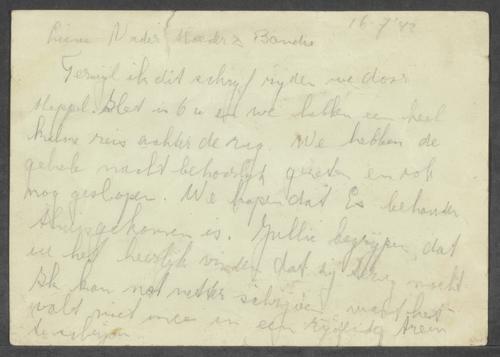 16-7'42
Lieve Vader Moeder & Bandie
Terwijl ik dit schrijf rijden we door
Meppel. Het is 6 u en we hebben een heel
reis achter de rug. We hebben de
gehele nacht behoorlijk gezeten en ook
nog geslapen. We hopen dat Es behouden
thuisgekomen is. Jullie begrijpen dat
we het heerlijk vinden dat zij terug mocht
Ik kan niet netter schrijven want het
valt niet mee in een rijdende trein
te schrijven.